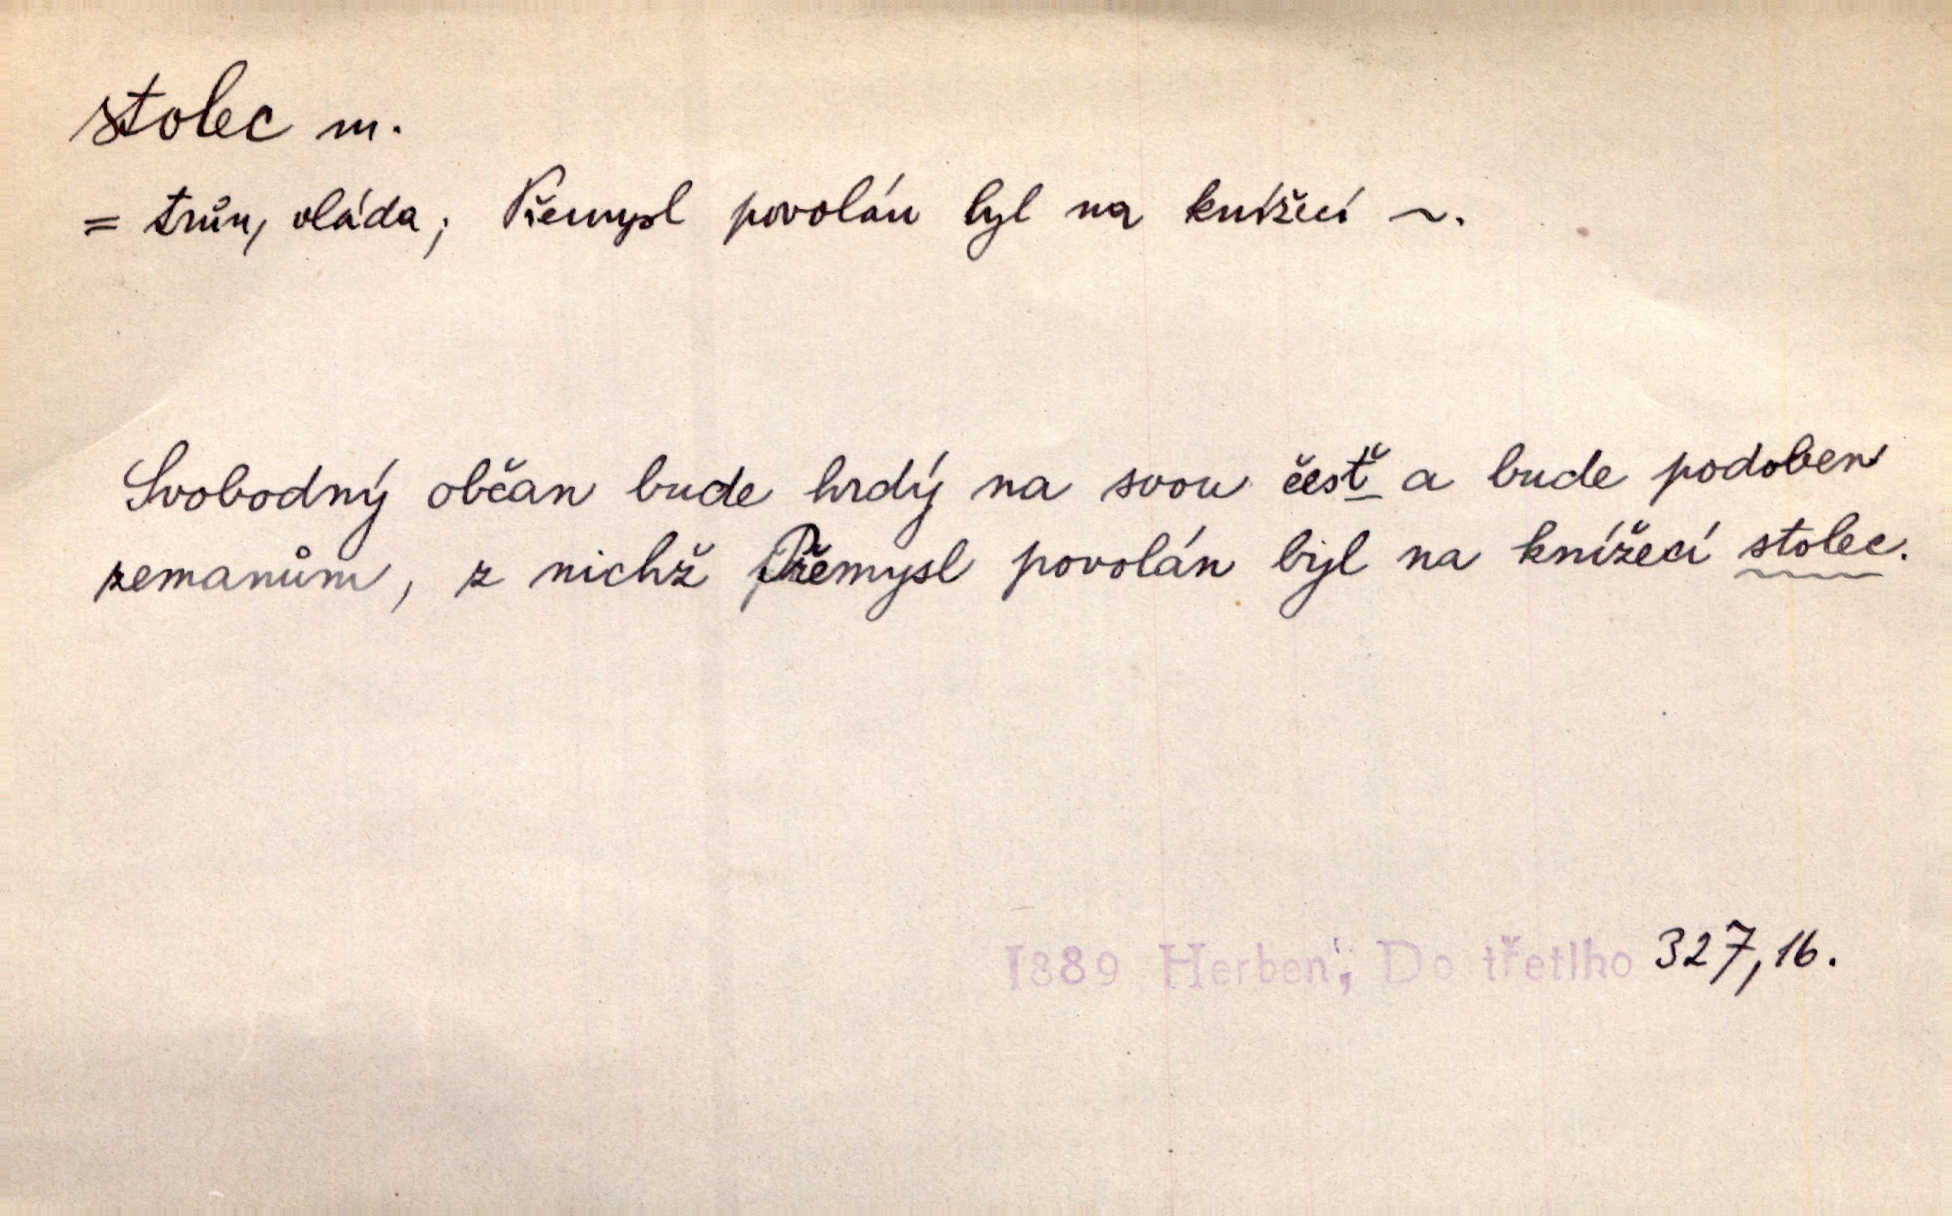 stolec m.
= trůn, vláda; Přemysl povolán byl na knížecí ~.
Svobodný občan bude hrdý na svou česť a bude podoben
zemanům, z nichž Přemysl povolán byl na knížecí stolec.
1889 Herben, Do třetího 327,16.